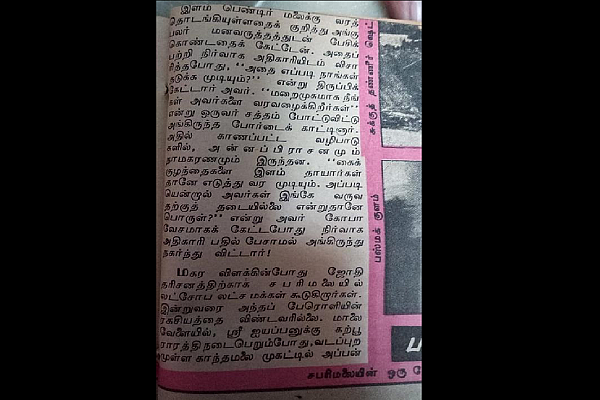 இளம் பெண்டிர் மலைக்கு வரத்
தொடங்கியுள்ளதைக் குறித்து அங்கு
பலர் மனவருத்தத்துடன் பேசிக்
கொண்டதைக் கேட்டேன். அதைப்
பற்றி நிர்வாக அதிகாரியிடம் விசா
ரித்தபோது, ‘‘அதை எப்படி நாங்கள்
தடுக்க முடியும்?’’ என்று திருப்பிக்
கேட்டார் அவர். ‘‘மறைமுகமாக நீங்
கள் அவர்களை வரவழைக்கிறீர்கள்’’
என்று ஒருவர் சத்தம் போட்டுவிட்டு
அங்கிருந்த போர்டைக் காட்டினார்.
அதில் காணப்பட்ட வழிபாடு
களில், அன்னப்பிராசனமும்
நாமகரணமும் இருந்தன. ‘‘கைக்
குழந்தைகளை இளம் தாயார்கள்
தானே எடுத்து வர முடியும். அப்படி
யென்றால் அவர்கள் இங்கே வருவ
தற்குத் தடையில்லை என்றுதானே
பொருள்?’’ என்று அவர் கோபா
வேசமாகக் கேட்டபோது நிர்வாக
அதிகாரி பதில் பேசாமல் அங்கிருந்து
நகர்ந்து விட்டார்!
மகர விளக்கின்போது ஜோதி
தரிசனத்திற்காக சபரிமலையில்
லட்சோப லட்ச மக்கள் கூடுகிறார்கள்.
இன்றுவரை அந்தப் பேரொளியின்
ரகசியத்தை விண்டவரில்லை. மாலை
வேளையில், ஸ்ரீ ஐயப்பனுக்கு கற்பூ
ராரத்தி நடைபெறும்போது, வடப்புற
முள்ள காந்தமலை முகட்டில் அப்பன்
சுக்குத் தண்ணீர் ஷெட்
பஸ்மக் குளம்
சபரிமலையின் ஒரு